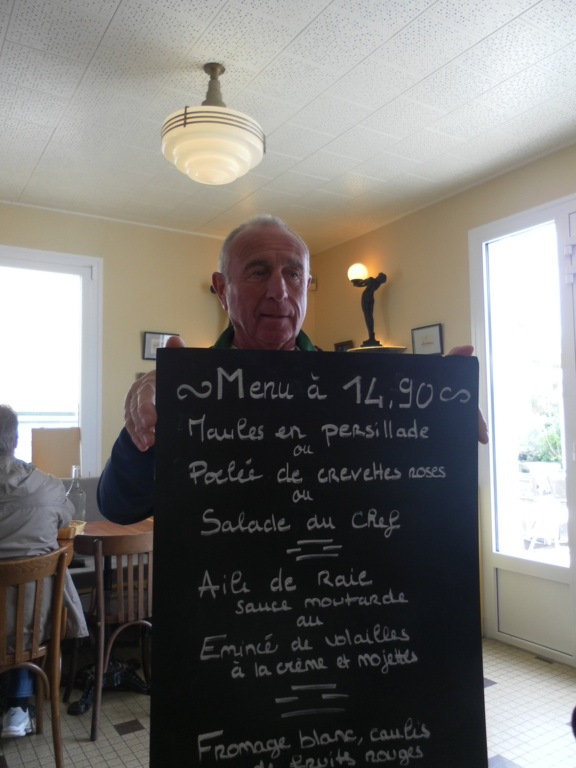 Menu à 14,90
Moules en persillade
ou
Poelée de crevettes roses
ou
Salade du chef
Aile de Raie
sauce moutarde
ou
Emincé de volailles
à la crème et mojettes
Fromage blanc, coulis
de fruits rouges